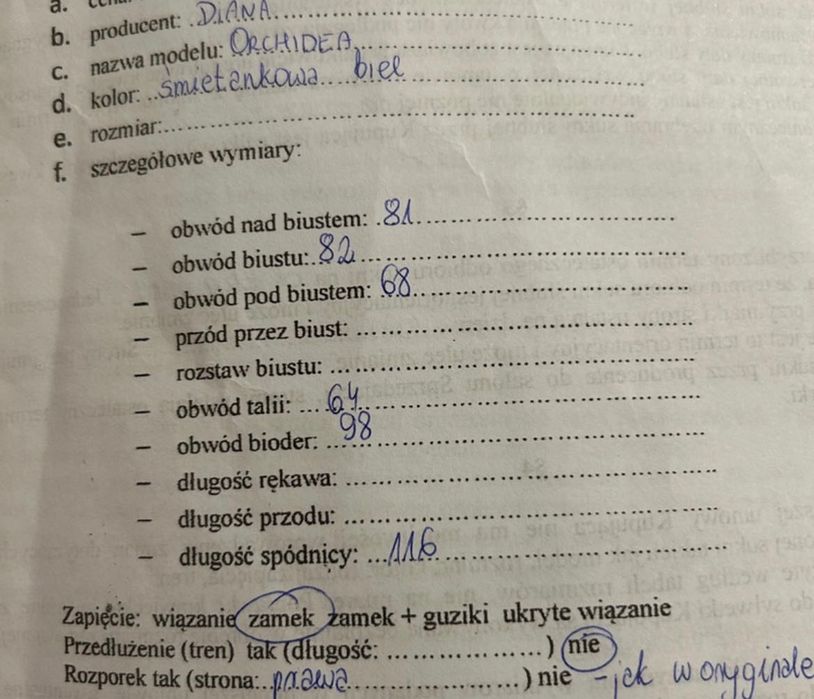 a.
b. producent: .DIANA.....................
c. nazwa modelu: ORCHIDEA.....................
d. kolor: ..śmietankowa biel.....................
e. rozmiar:.....................
f. szczegółowe wymiary:
– obwód nad biustem: .81.....................
– obwód biustu:.82.....................
– obwód pod biustem: 68.....................
– przód przez biust: .....................
– rozstaw biustu: .....................
– obwód talii: ...64.....................
– obwód bioder: ..98.....................
– długość rękawa: .....................
– długość przodu: .....................
– długość spódnicy: ...116.....................
Zapięcie: wiązanie zamek zamek + guziki ukryte wiązanie
Przedłużenie (tren) tak (długość: .....................) nie
Rozporek tak (strona:..prawa.....................) nie - jak w oryginale